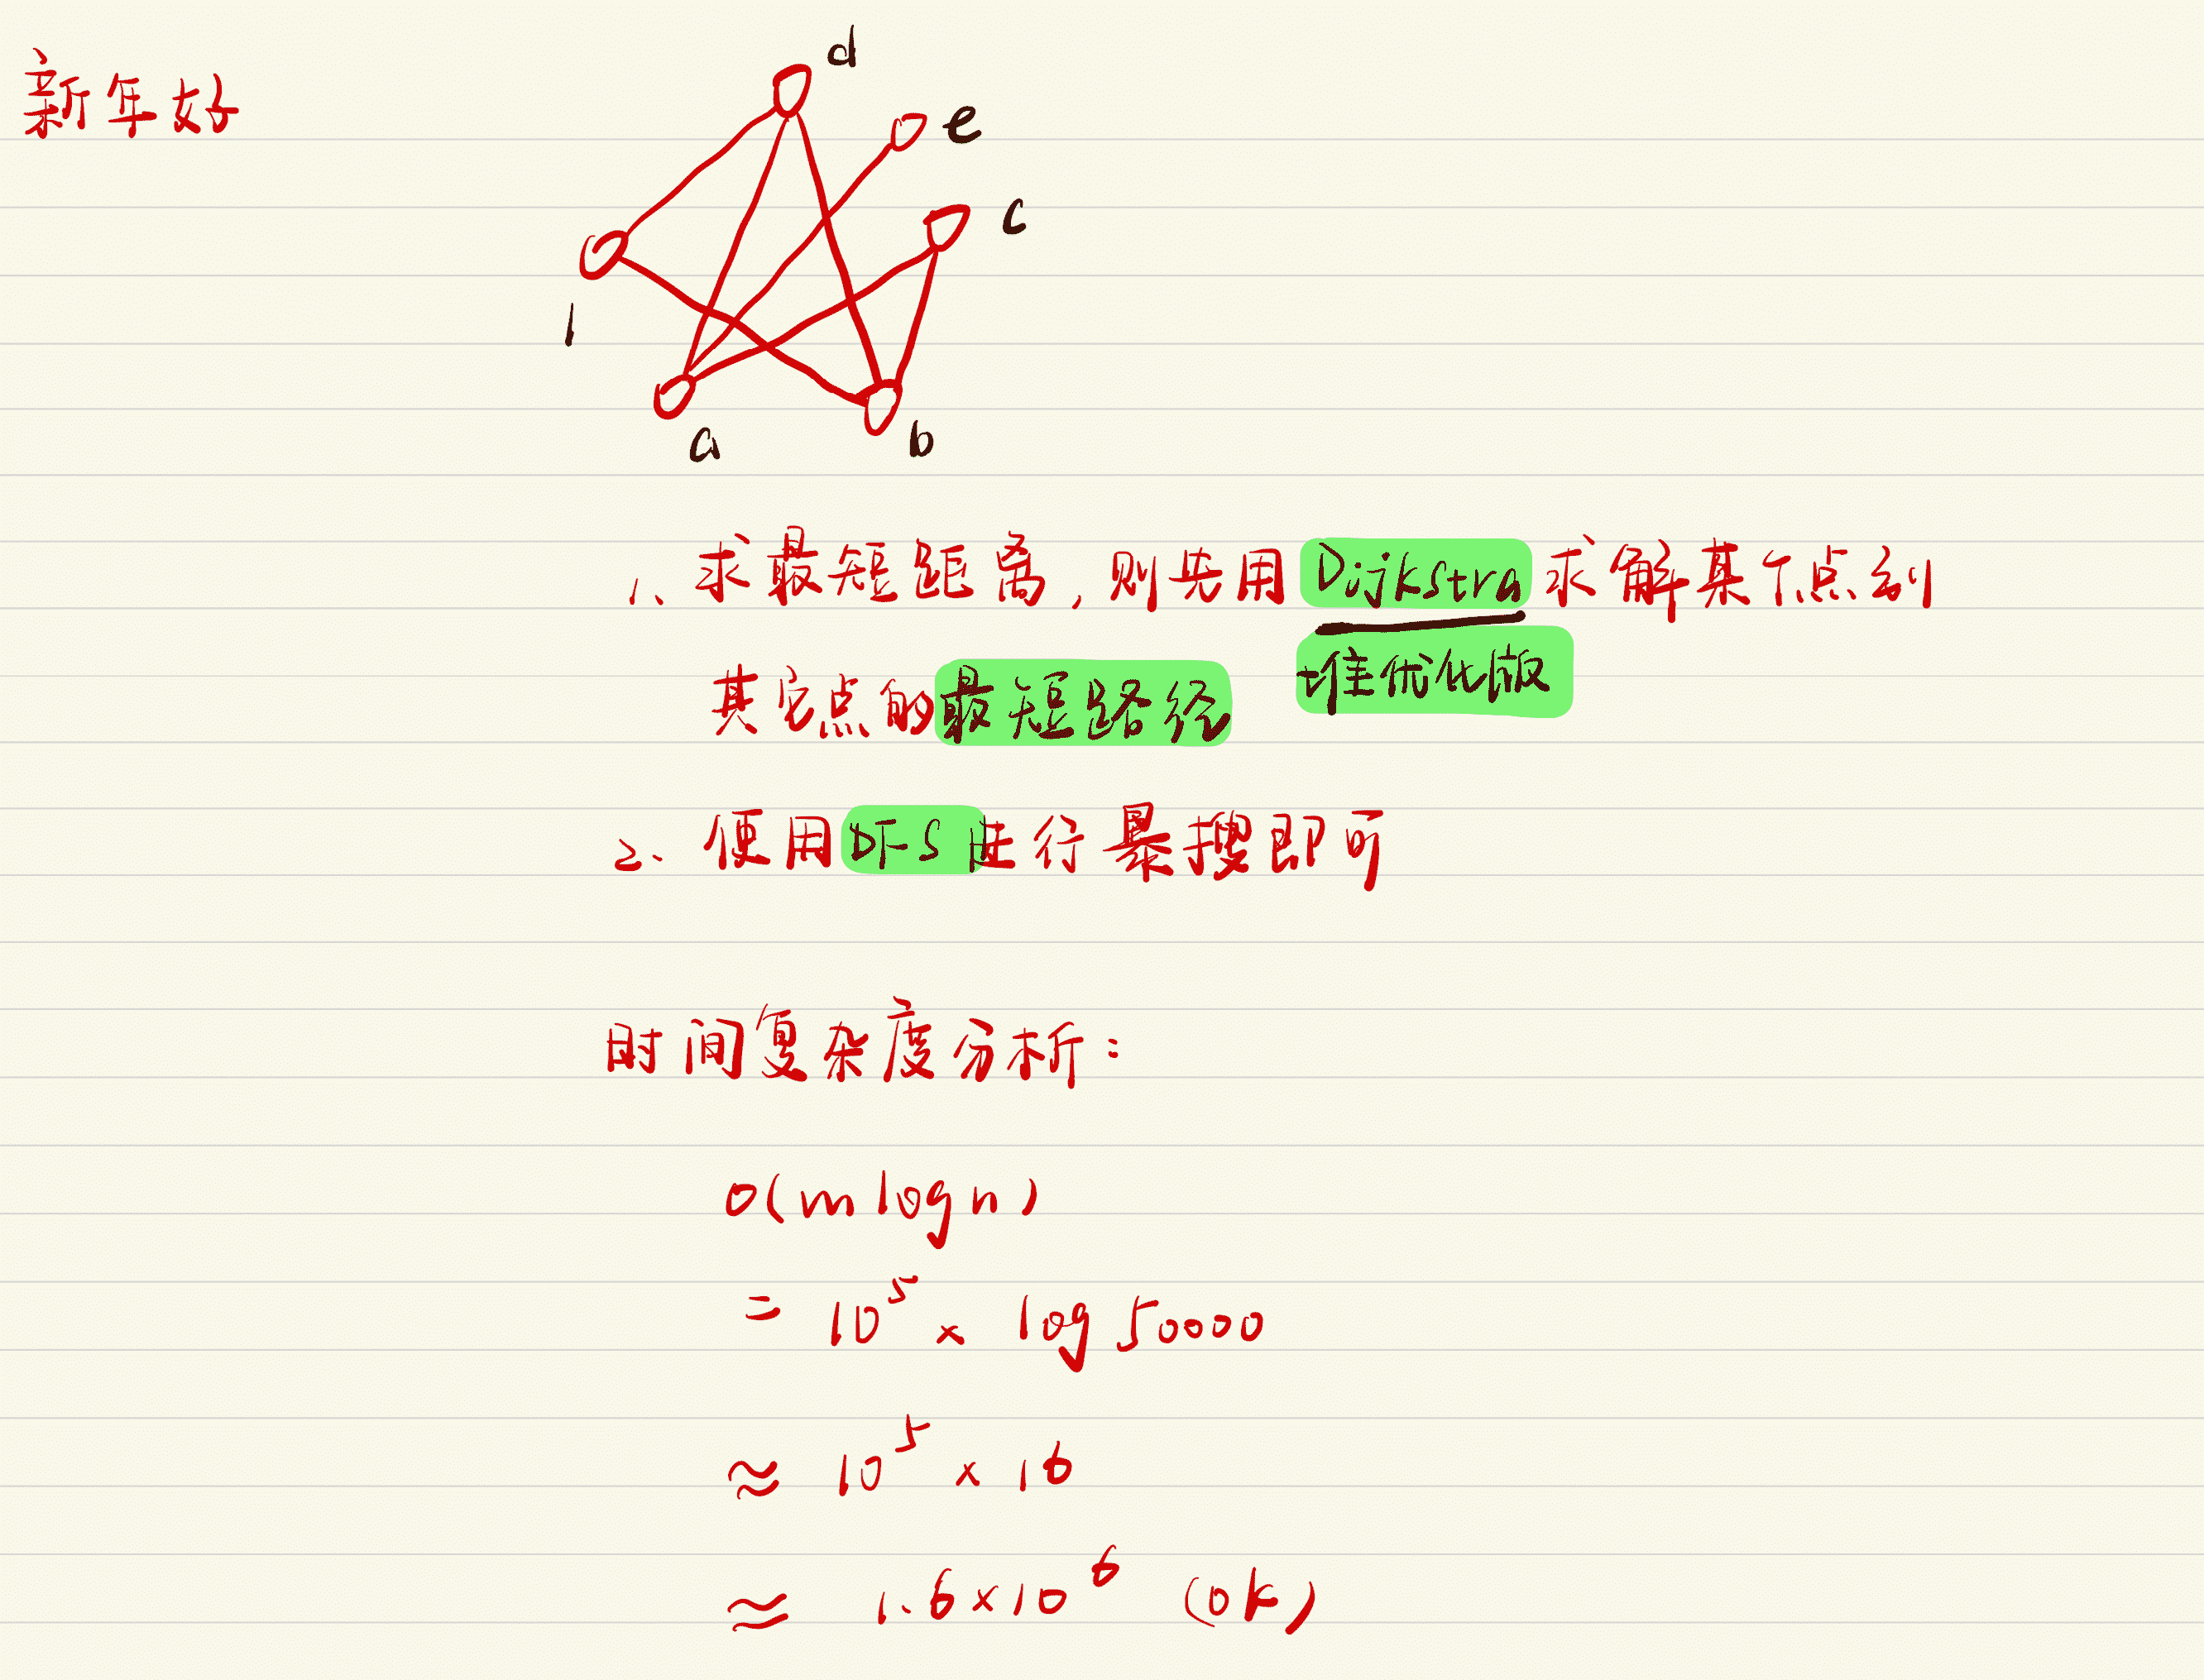 新年好
d
e
c
1
a
b
1、求最短距离,则先用Dijkstra求解某个点到
堆优化版
其它点的最短路径
2. 使用DFS进行暴搜即可
时间复杂度分析:
O(mlogn)
= 10⁵ × log 50000
≈ 10⁵ × 16
≈ 1.6×10⁶ (ok)